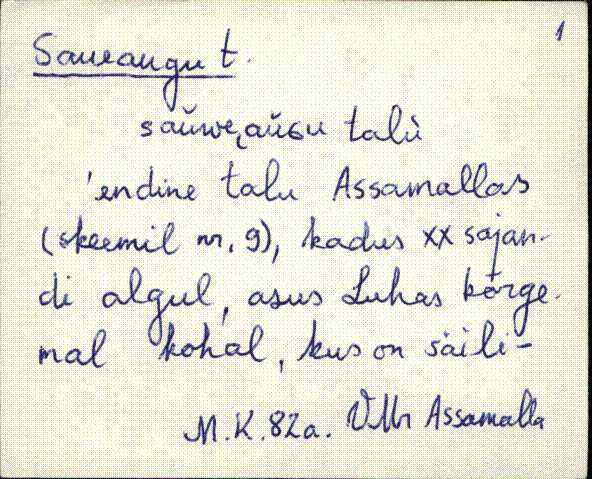 1
Saueaugu t.
saŭwe̮aŭɢu talù
'endine talu Assamallas
(skeemil nr. 9), kadus XX sajan-
di algul, asus Luhas kõrge-
mal kohal, kus on säili-
M.K.82a. VMr Assamalla